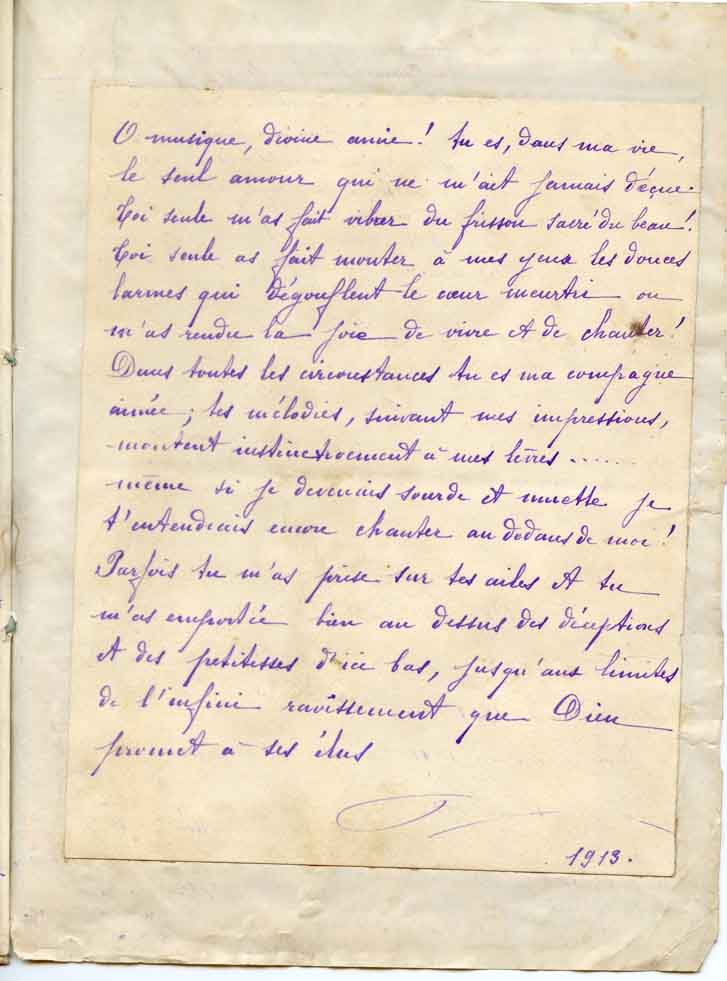 O musique, divine amie ! tu es, dans ma vie,
le seul amour qui ne m'ait jamais déçue.
Toi seule m'as fait vibrer du frisson sacré du beau !
Toi seule as fait monter à mes yeux les douces
larmes qui dégonflent le cœur meurtri ou
m'as rendu la joie de vivre et de chanter !
Dans toutes les circonstances tu es ma compagne
aimée ; tes mélodies, suivant mes impressions,
montent instinctivement à mes lèvres ......
même si je devenais sourde et muette je
t'entendrais encore chanter au dedans de moi !
Parfois tu m'as prise sur tes ailes et tu
m'as emportée bien au dessus des déceptions
et des petitesses d'ici bas, jusqu'aux limites
de l'infini ravissement que Dieu
promet à ses élus
1913.